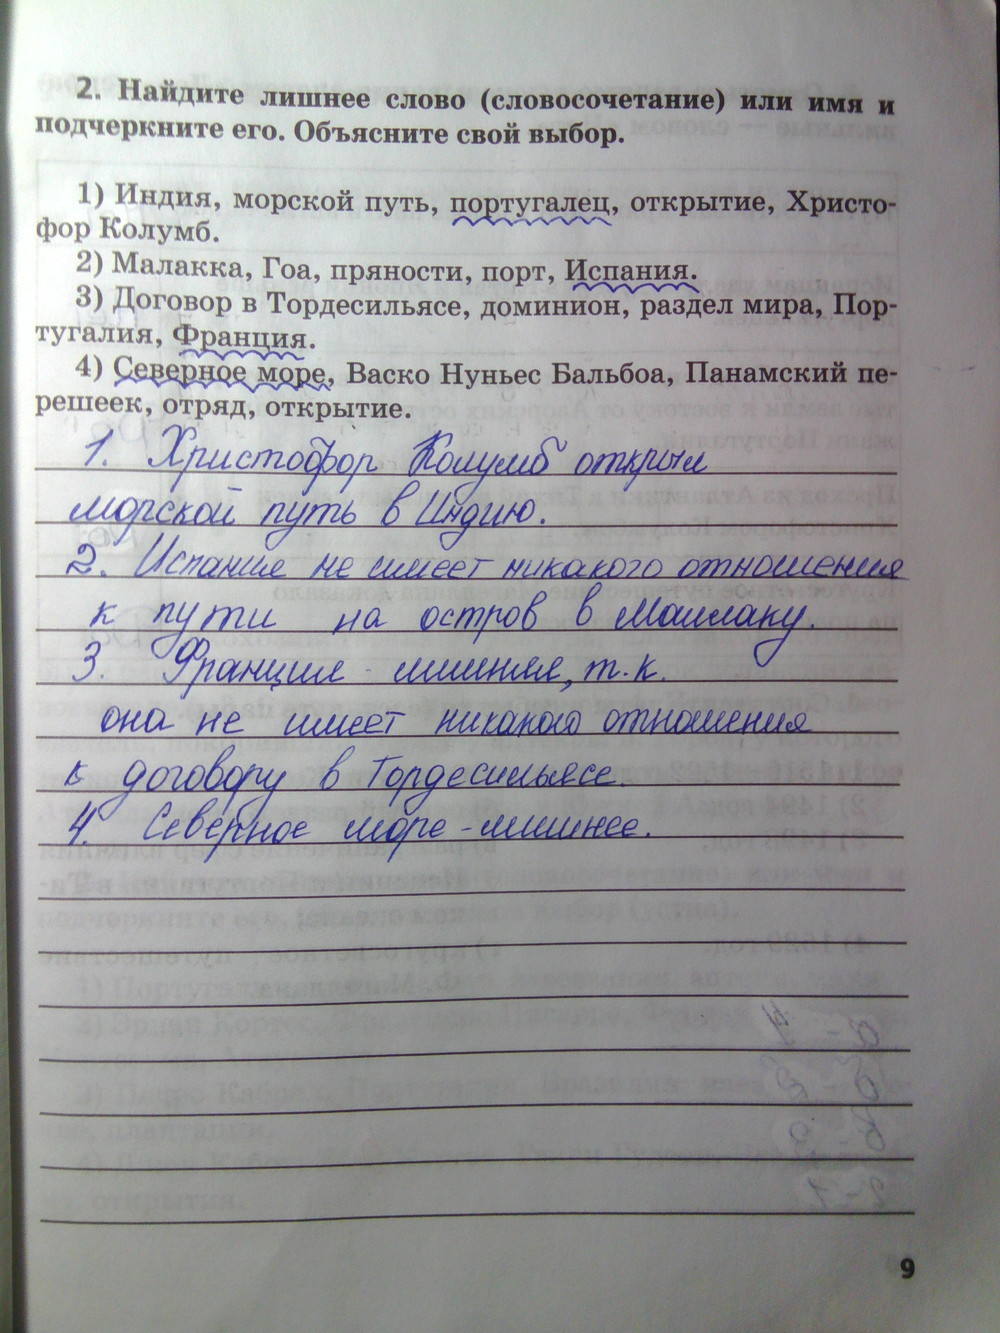 2. Найдите лишнее слово (словосочетание) или имя и
подчеркните его. Объясните свой выбор.
1) Индия, морской путь, португалец, открытие, Христо-
фор Колумб.
2) Малакка, Гоа, пряности, порт, Испания.
3) Договор в Тордесильясе, доминион, раздел мира, Пор-
тугалия, Франция.
4) Северное море, Васко Нуньес Бальбоа, Панамский пе-
решеек, отряд, открытие.
1. Христофор Колумб открыл
морской путь в Индию.
2. Испания не имеет никакого отношения
к пути на остров в Маллаку.
3. Франция - лишняя, т.к.
она не имеет никакого отношения
к договору в Тордесильясе.
4. Северное море - лишнее.
9